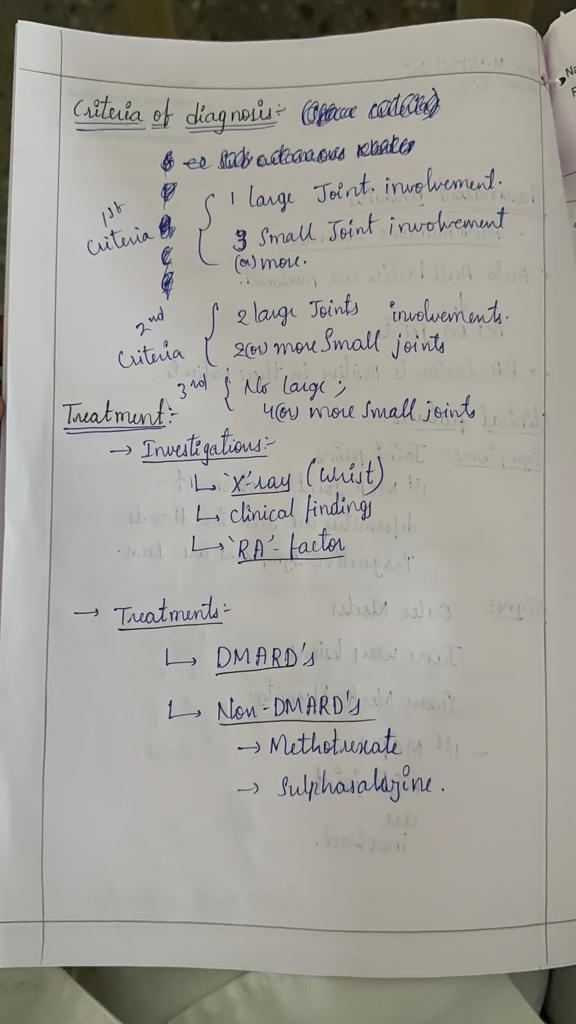 Criteria of diagnosis:-
1st Criteria { 1 large Joint. involvement.
3 Small Joint involvement
(or) more.
2nd Criteria { 2 large Joints involvements.
2(or) more Small joints
3rd { No large ;
4(or) more small joints
Treatment:-
→ Investigations:-
↳ 'X'-ray (wrist)
↳ clinical findings
↳ 'RA'-factor
→ Treatments:-
↳ DMARD's
↳ Non-DMARD's
→ Methotrexate
→ Sulphasalazine.